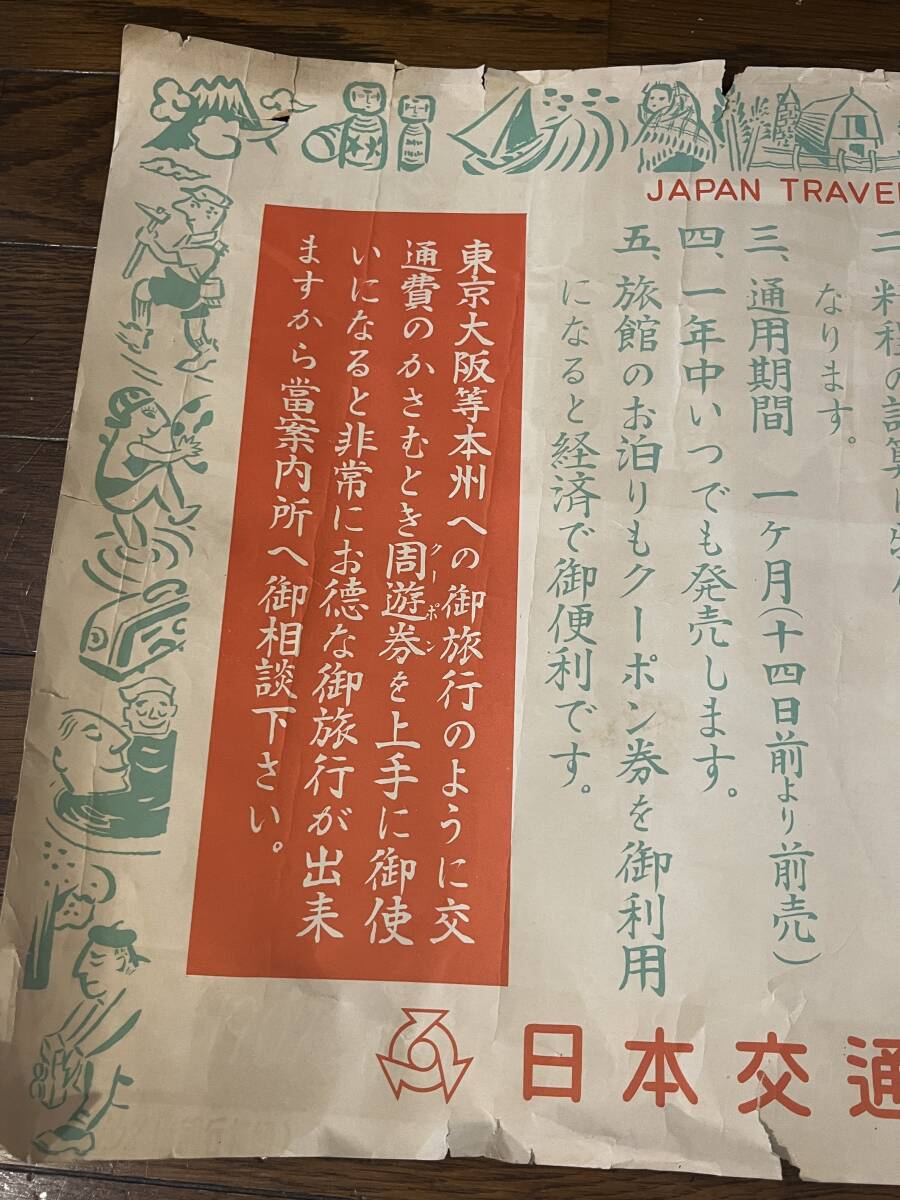 JAPAN TRAVE
二、料程の計算は
なります。
三、通用期間 一ケ月(十四日前より前売)
四、一年中いつでも発売します。
五、旅館のお泊りもクーポン券を御利用
になると経済で御便利です。
東京大阪等本州への御旅行のように交
通費のかさむとき周遊券を上手に御使
クーポン
いになると非常にお徳な御旅行が出来
ますから當案内所へ御相談下さい。
日本交通